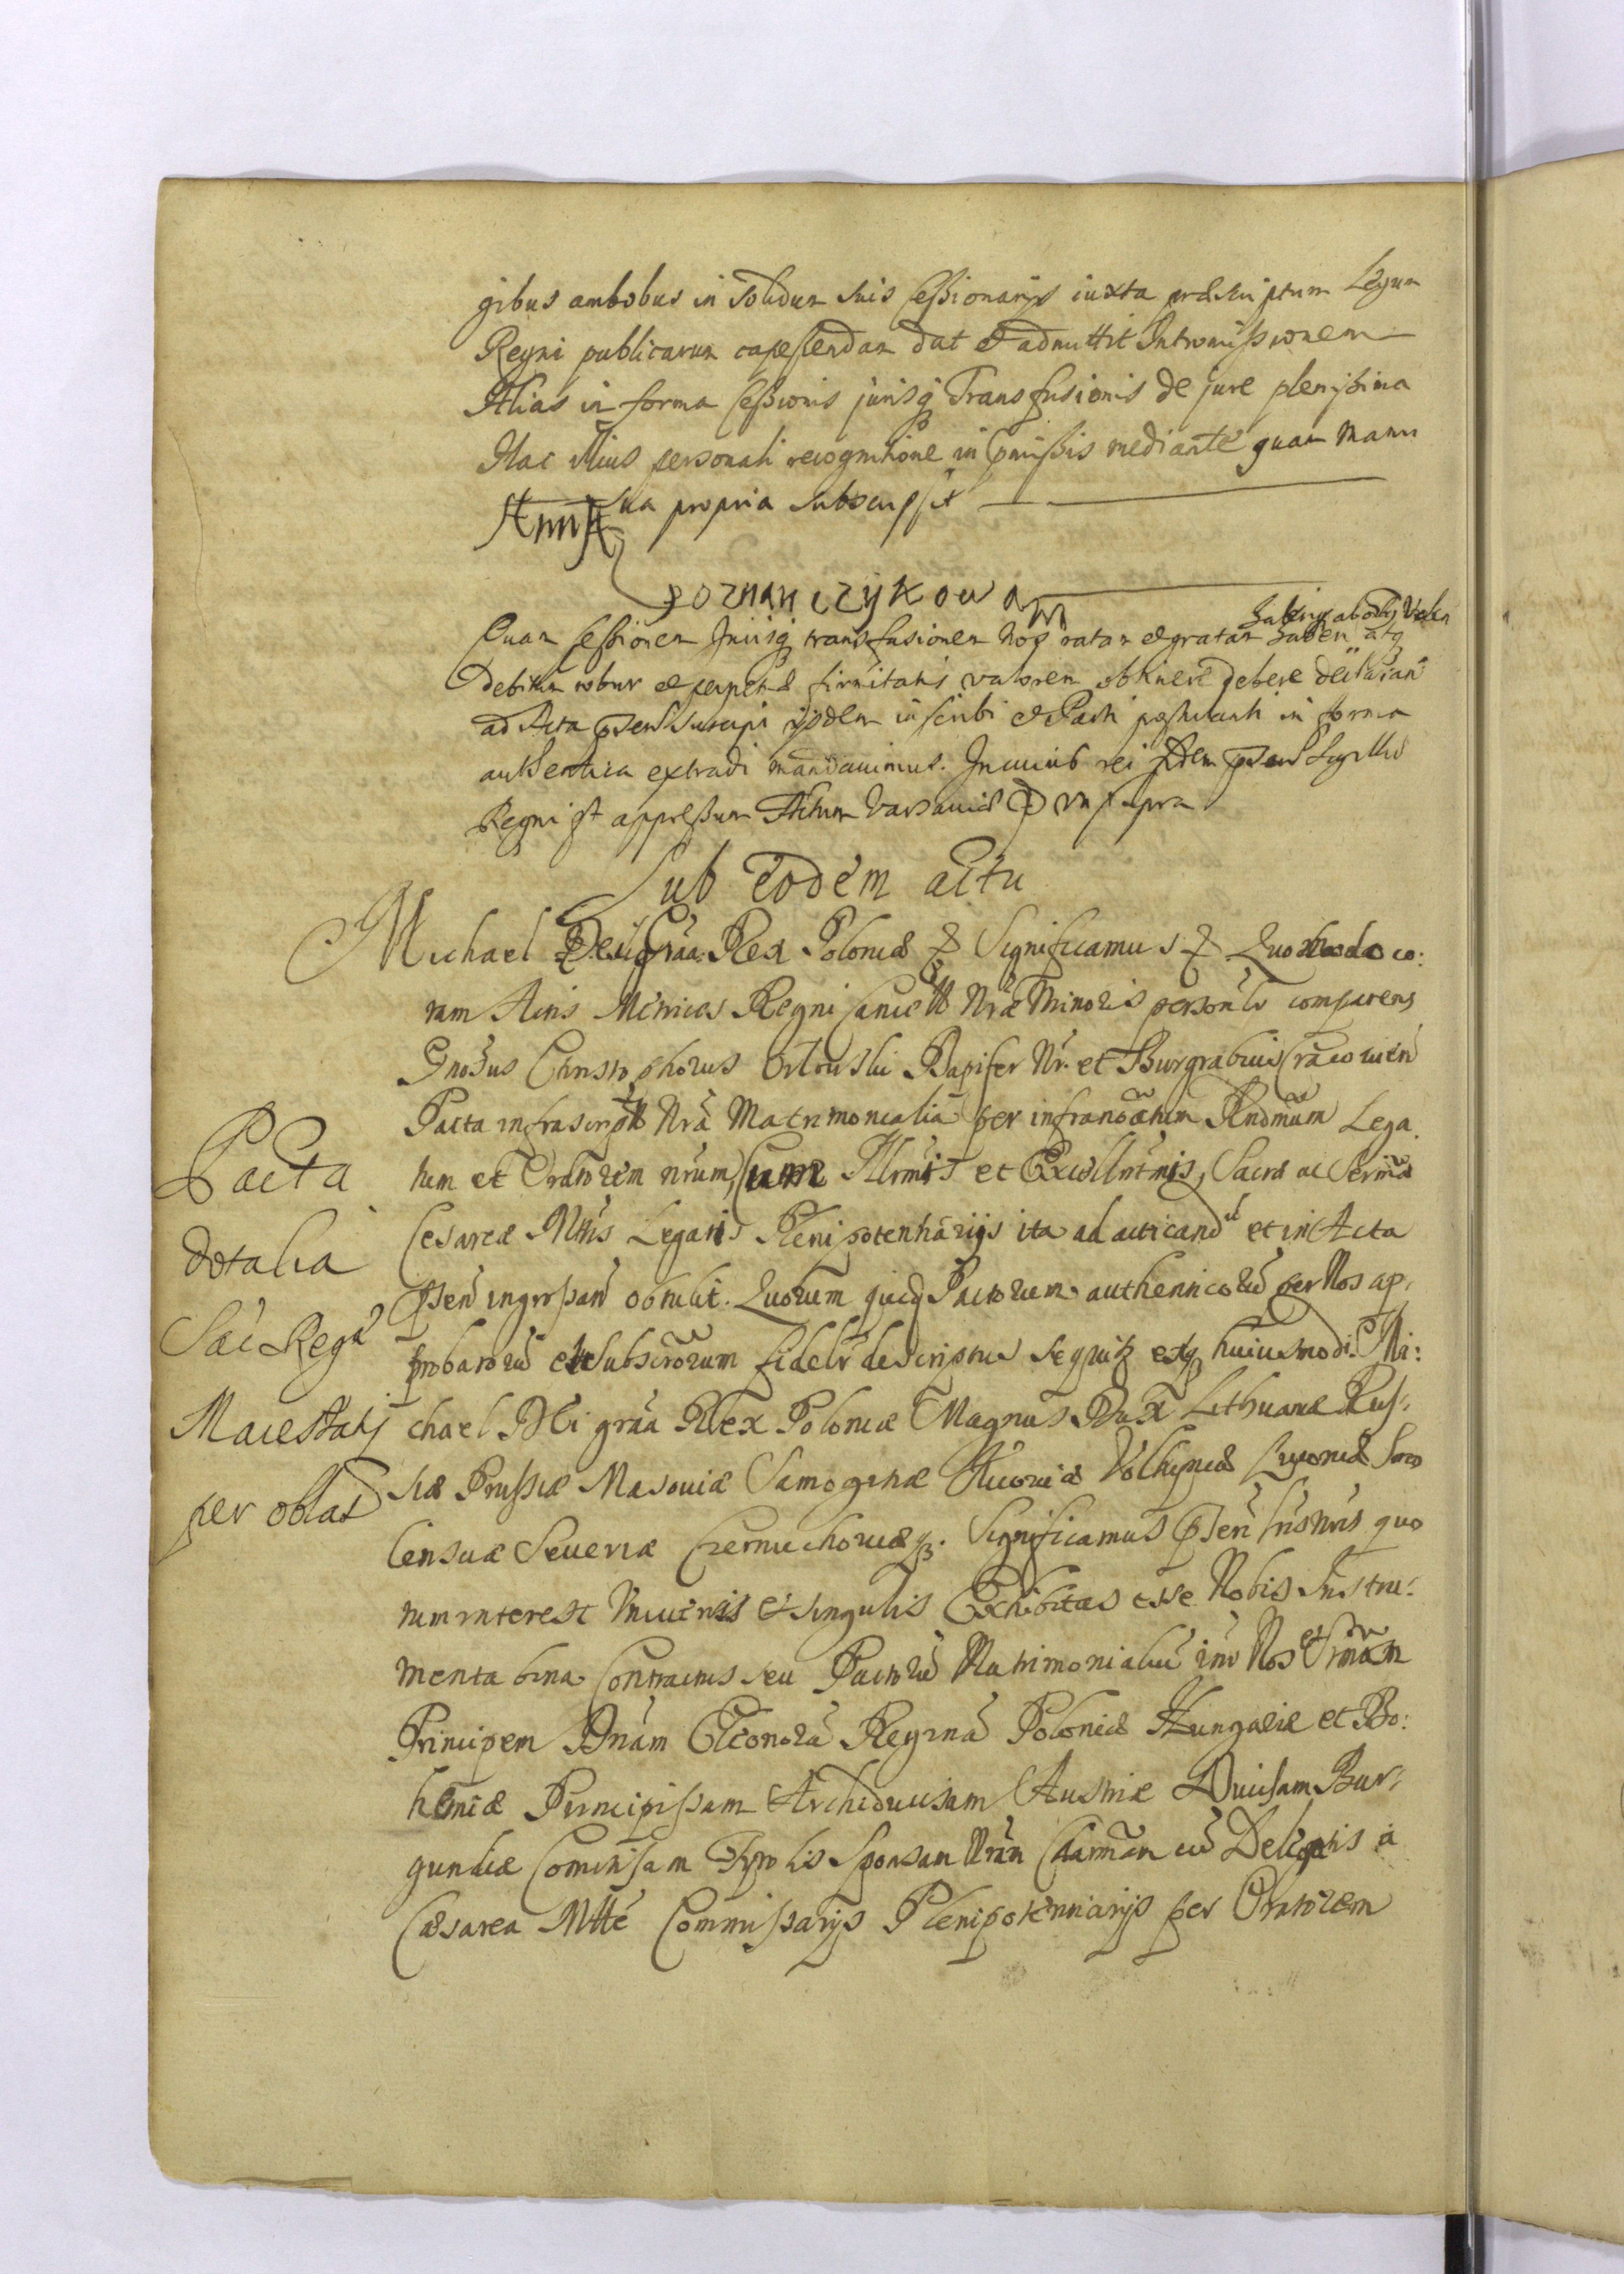 gibus ambobus in solidum suis Cessionarijs iuxta præscriptum Legum
Regni publicarum capessendam dat et admittit Intromissionem
Alias in forma Cessionis jurisq Transfusionis de jure plenissima
Hac illius personali recognitione in præmissis mediante quam manu
sua propria subscripsit
Anna
Poznanczykowa
Quam Cessionem Jurisq transfusionem nos ratam et gratam haberi atq
debitum robur et perpetuæ firmitatis valorem obtinere debere declaran
ad Acta psen suscipi ijsdem inscribi et Parti postulanti in forma
authentica extradi mandavimus. In cuius rei fidem psens Sigillũ
Regni est appressum Actum Varsaviæ ut supra
Sub eodem actu
Michael Dei Gra Rex Poloniæ Significamus Quomodo co:
ram Actis Metrices Regni Cancell Nræ Minoris personlr comparens
Gnosus Christophorus Dapifer Nr. et Burgrabius Cracovien
Pacta infrascript Nra Matrimonialia per infranoatum Rndmum Lega
tum et Oratorem nrum, cum Illrmis et Excellmtmis, Sacræ ac Sermæ
Cesareæ Mttis Legatis Plenipotentiarijs ita ad acticand et in Acta
psen ingrossand obtulit. Quorum quidq Pactorum authenticorũ per Nos ap,
probatorũ et subscrorum fidelr descriptus sequitr estq huiusmodi. Mi:
chael Dei gra Rex Poloniæ Magnus Dux Lithuaniæ Rus,
siæ Prussiæ Masoviæ Samogitiæ Kiioviæ Volhyniæ Livoniæ Smo
lensciæ Severiæ Czerniechoviæq. Significamus psen lris nris quo
rum interest Universis et singulis Exhibitas esse Nobis Instru:
menta bina Contractus seu Pactorũ Matrimonialiũ intr Nos et Srmam
Principem Dnam Eleonorã Reginã Poloniæ Hungariæ et Bo:
hemiæ Principissam Archiducissam Austriæ Ducissam Bur,
gundiæ Comitissam Tyrolis Sponsam Nram Charmam cũ Delegatis a
Cæsarea Mtte Commissarijs Plenipotentiarijs per Oratorem
Pacta
dotalia
Sac Regæ
Maiestatis
per oblat